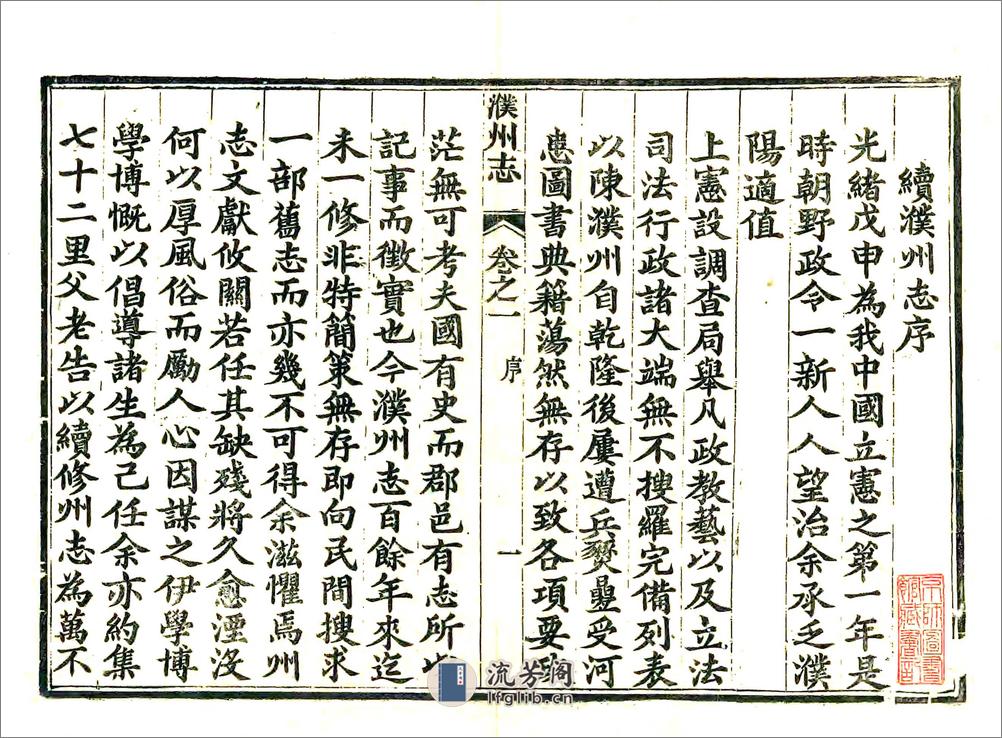 續濮州志序
光緒戊申為我中國立憲之第一年是
時朝野政令一新人人望治余承乏濮
陽適值
上憲設調查局舉凡政教藝以及立法
司法行政諸大端無不搜羅完備列表
以陳濮州自乾隆後屢遭兵燹曡受河
患圖書典籍蕩然無存以致各項要
濮州志 卷之一 序 一
茫無可考夫國有史而郡邑有志所以
記事而徵實也今濮州志百餘年來迄
未一修非特簡策無存即向民間搜求
一部舊志而亦幾不可得余滋懼焉州
志文獻攸關若任其缺殘將久愈湮沒
何以厚風俗而勵人心因謀之伊學博
學博慨以倡導諸生為己任余亦約集
七十二里父老告以續修州志為萬不
京師圖書
館藏書記
流芳阁
lfglib.cn